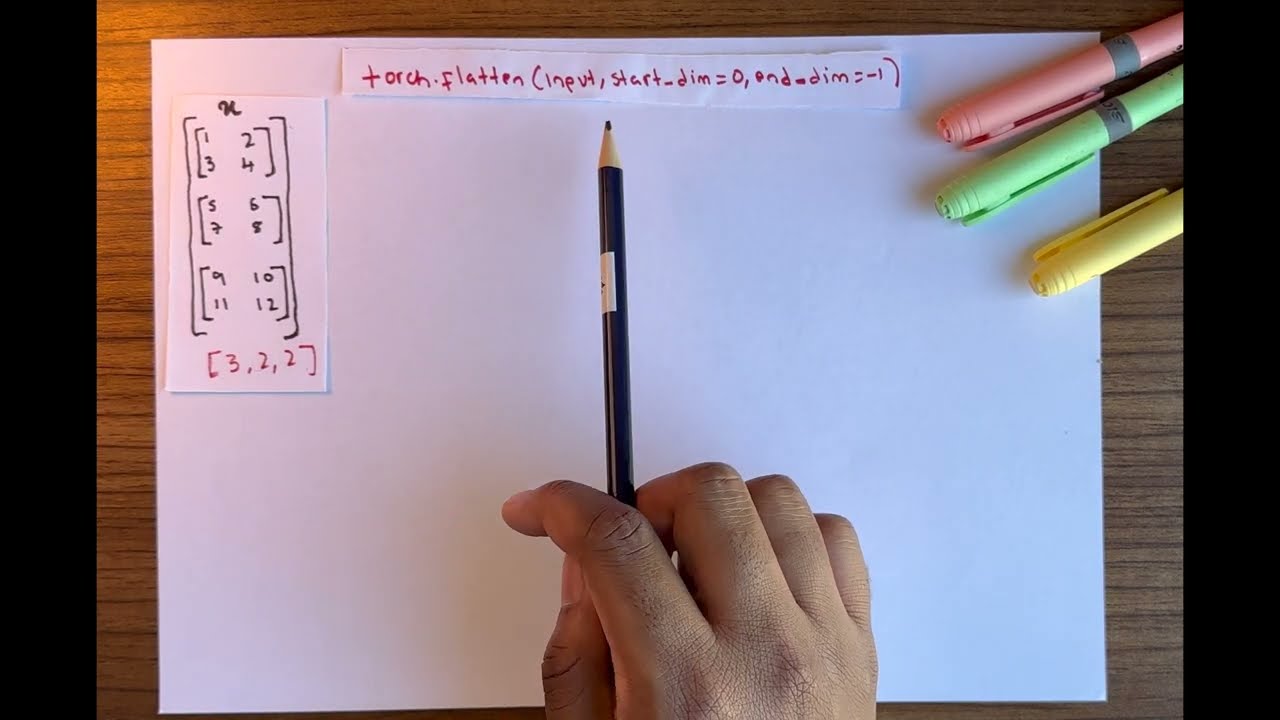 torch.flatten(input, start_dim=0, end_dim=-1)
x
[[1 2
3 4]
[5 6
7 8]
[9 10
11 12]]
[3, 2, 2]